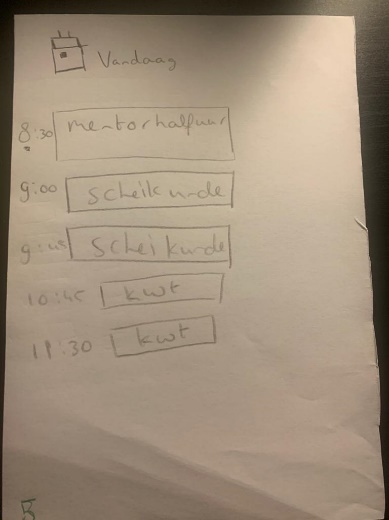 Vandaag
8:30 mentorhalfuur
9:00 scheikunde
9:45 scheikunde
10:45 kwt
11:30 kwt